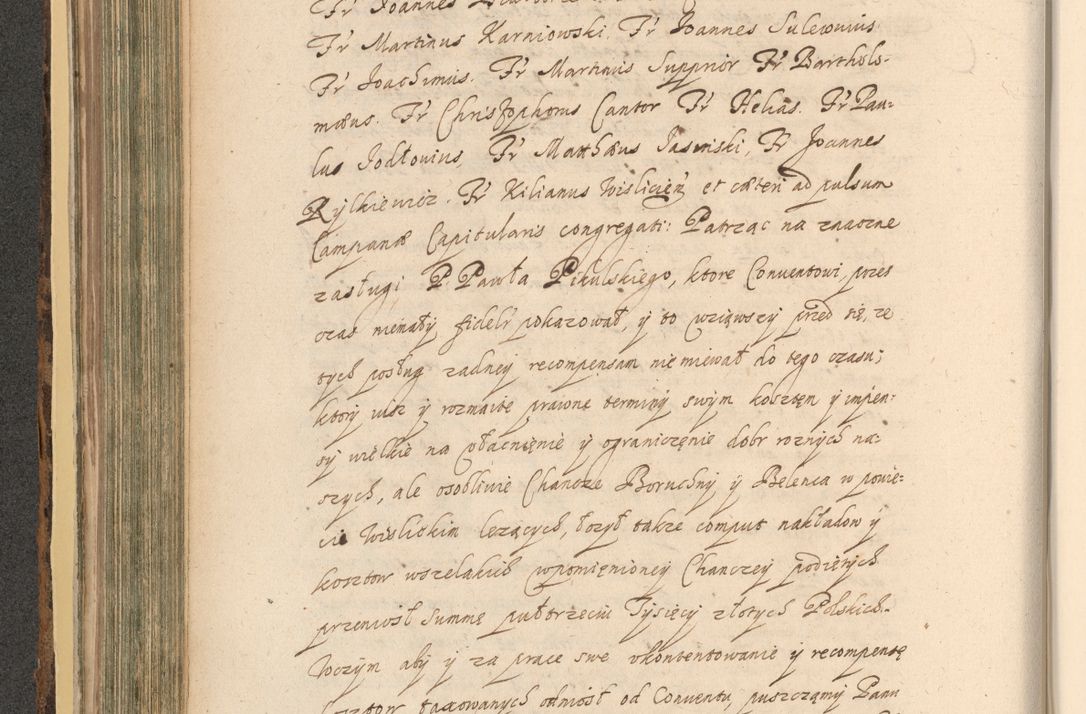 Fr Joannes
Fr Martinus Karniowski. Fr Joannes Sulewius
Fr Joachimus. Fr Martinus Supprior Fr Bartholo-
mæus. Fr Christophorus Cantor Fr Helias. Fr Pau-
lus Jodłovius, Fr Matthæus Jasinski, Fr Joannes
Rylkiewicz. Fr Kilianus Wislicień et cæteri ad pulsum
Campanæ Capitularis congregati: Patrząc na znaczne
zasługi P. Pawła Pikulskiego, ktore Conuentowi przes
czas niemały fidelr pokazował, y to wziąwszy przed się, ze
tych posług zadney recompensam niemiewał do tego czasu;
ktory ulsz y rozmaite prawne terminy swym kosztęm y impen-
sy wielkie na obacnięnie y ograniczęnie dobr roznych na-
szych, ale osobliwie Chancze Boruchny y Belenca w powie-
cie Wislickim lezących, łozył takze comput nakładow y
kosztow wszelakich wpomięnioney Chanczey podiętych
przeniosł Summę pułtrzeciu Tysięcy złotych Polskich.
Wczym aby y za prace swe ukontentowanie y recompensę
kosztow taxowanych odniosł od Conuentu, puszczamy Panu